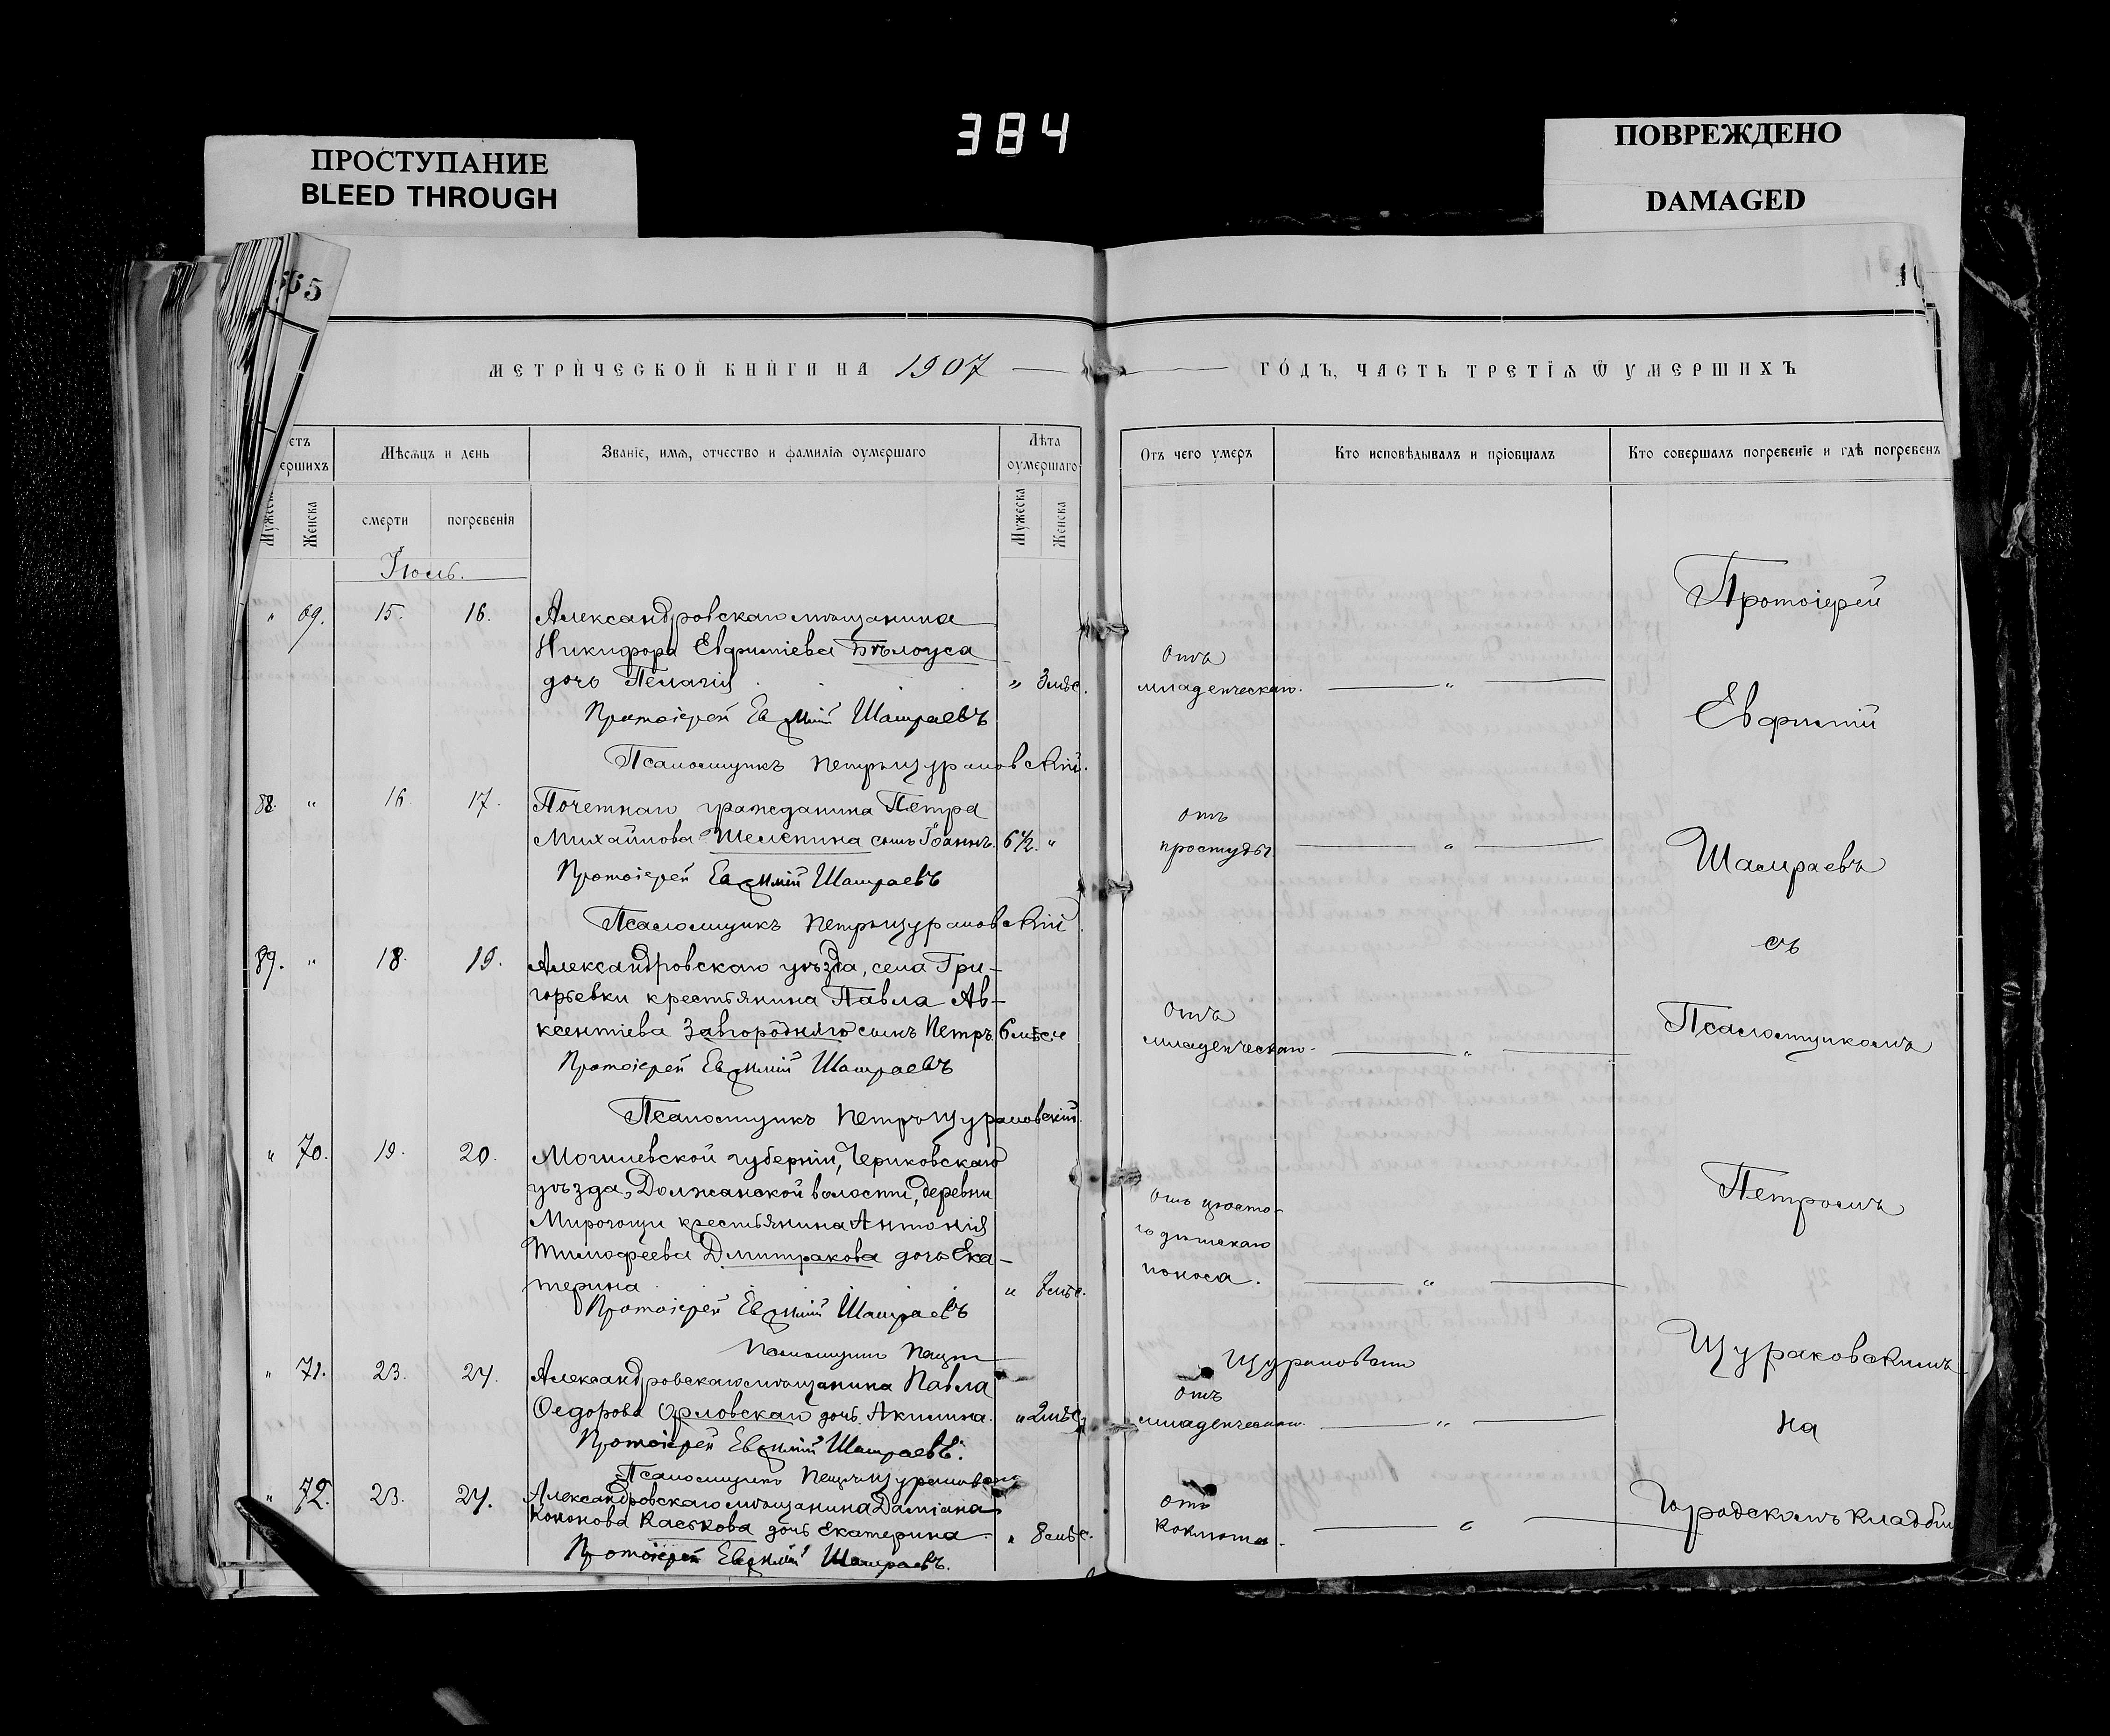 384
ПРОСТУПАНИЕ
BLEED THROUGH
ПОВРЕЖДЕНО
DAMAGED
565
МЕТРИ́ЧЕСКОЙ КНИ́ГИ НА 1907
ГО́ДЪ, ЧАСТЬ ТРЕТІѦ Ѿ УМЕРШИХЪ
Мѣсѧцъ и день
Званіе, имѧ, отчество и фамиліѧ оумершаго
Лѣта оумершаго
Отъ чего умеръ
Кто исповѣдывалъ и пріобщалъ
Кто совершалъ погребеніе и гдѣ погребенъ
Женска
смерти
погребенія
Мужеска
Женска
Іюль.
" 69. 15. 16. Александровскаго мѣщанина
Никифора Евфиміева Бѣлоуса
дочь Пелагія " 3 мѣс.
отъ
младенческаго.
Протоіерей Евфимій Шамраевъ
Псаломщикъ Петръ Щурановскій.
88. " 16. 17. Почетнаго гражданина Петра
Михайлова Шелепина сынъ Іоаннъ. 6½. "
отъ
простуды
Протоіерей Евфимій Шамраевъ
Псаломщикъ Петръ Щурановскій
89. " 18. 19. Александровскаго уѣзда, села Гри-
горьевки крестьянина Павла Ав-
ксентіева Завгородняго сынъ Петръ. 6 мѣс. "
отъ
младенческаго.
Протоіерей Евфимій Шамраевъ
Псаломщикъ Петръ Щурановскій
" 70. 19. 20. Могилевской губерніи, Чериковскаго
уѣзда, Должанской волости, деревни
крестьянина Антонія
Тимофеева Дмитракова дочь Ека-
терина " 7 мѣс.
поноса.
Протоіерей Евфимій Шамраевъ
Псаломщикъ Петръ Щурановскій
" 71. 23. 24. Александровскаго мѣщанина Павла
Ѳедорова Орловскаго дочь Акилина. " 2 мѣс.
отъ
младенческаго.
Протоіерей Евфимій Шамраевъ.
Псаломщикъ Петръ Щурановскій
" 72. 23. 24. Александровскаго мѣщанина Даміана
Кононова Каськова дочь Екатерина. " 8 мѣс.
отъ
Коклюша.
Протоіерей Евфимій Шамраевъ.
Протоіерей
Евфимій
Шамраевъ
съ
Псаломщикомъ
Петромъ
Щурановскимъ
на
Городскомъ кладби